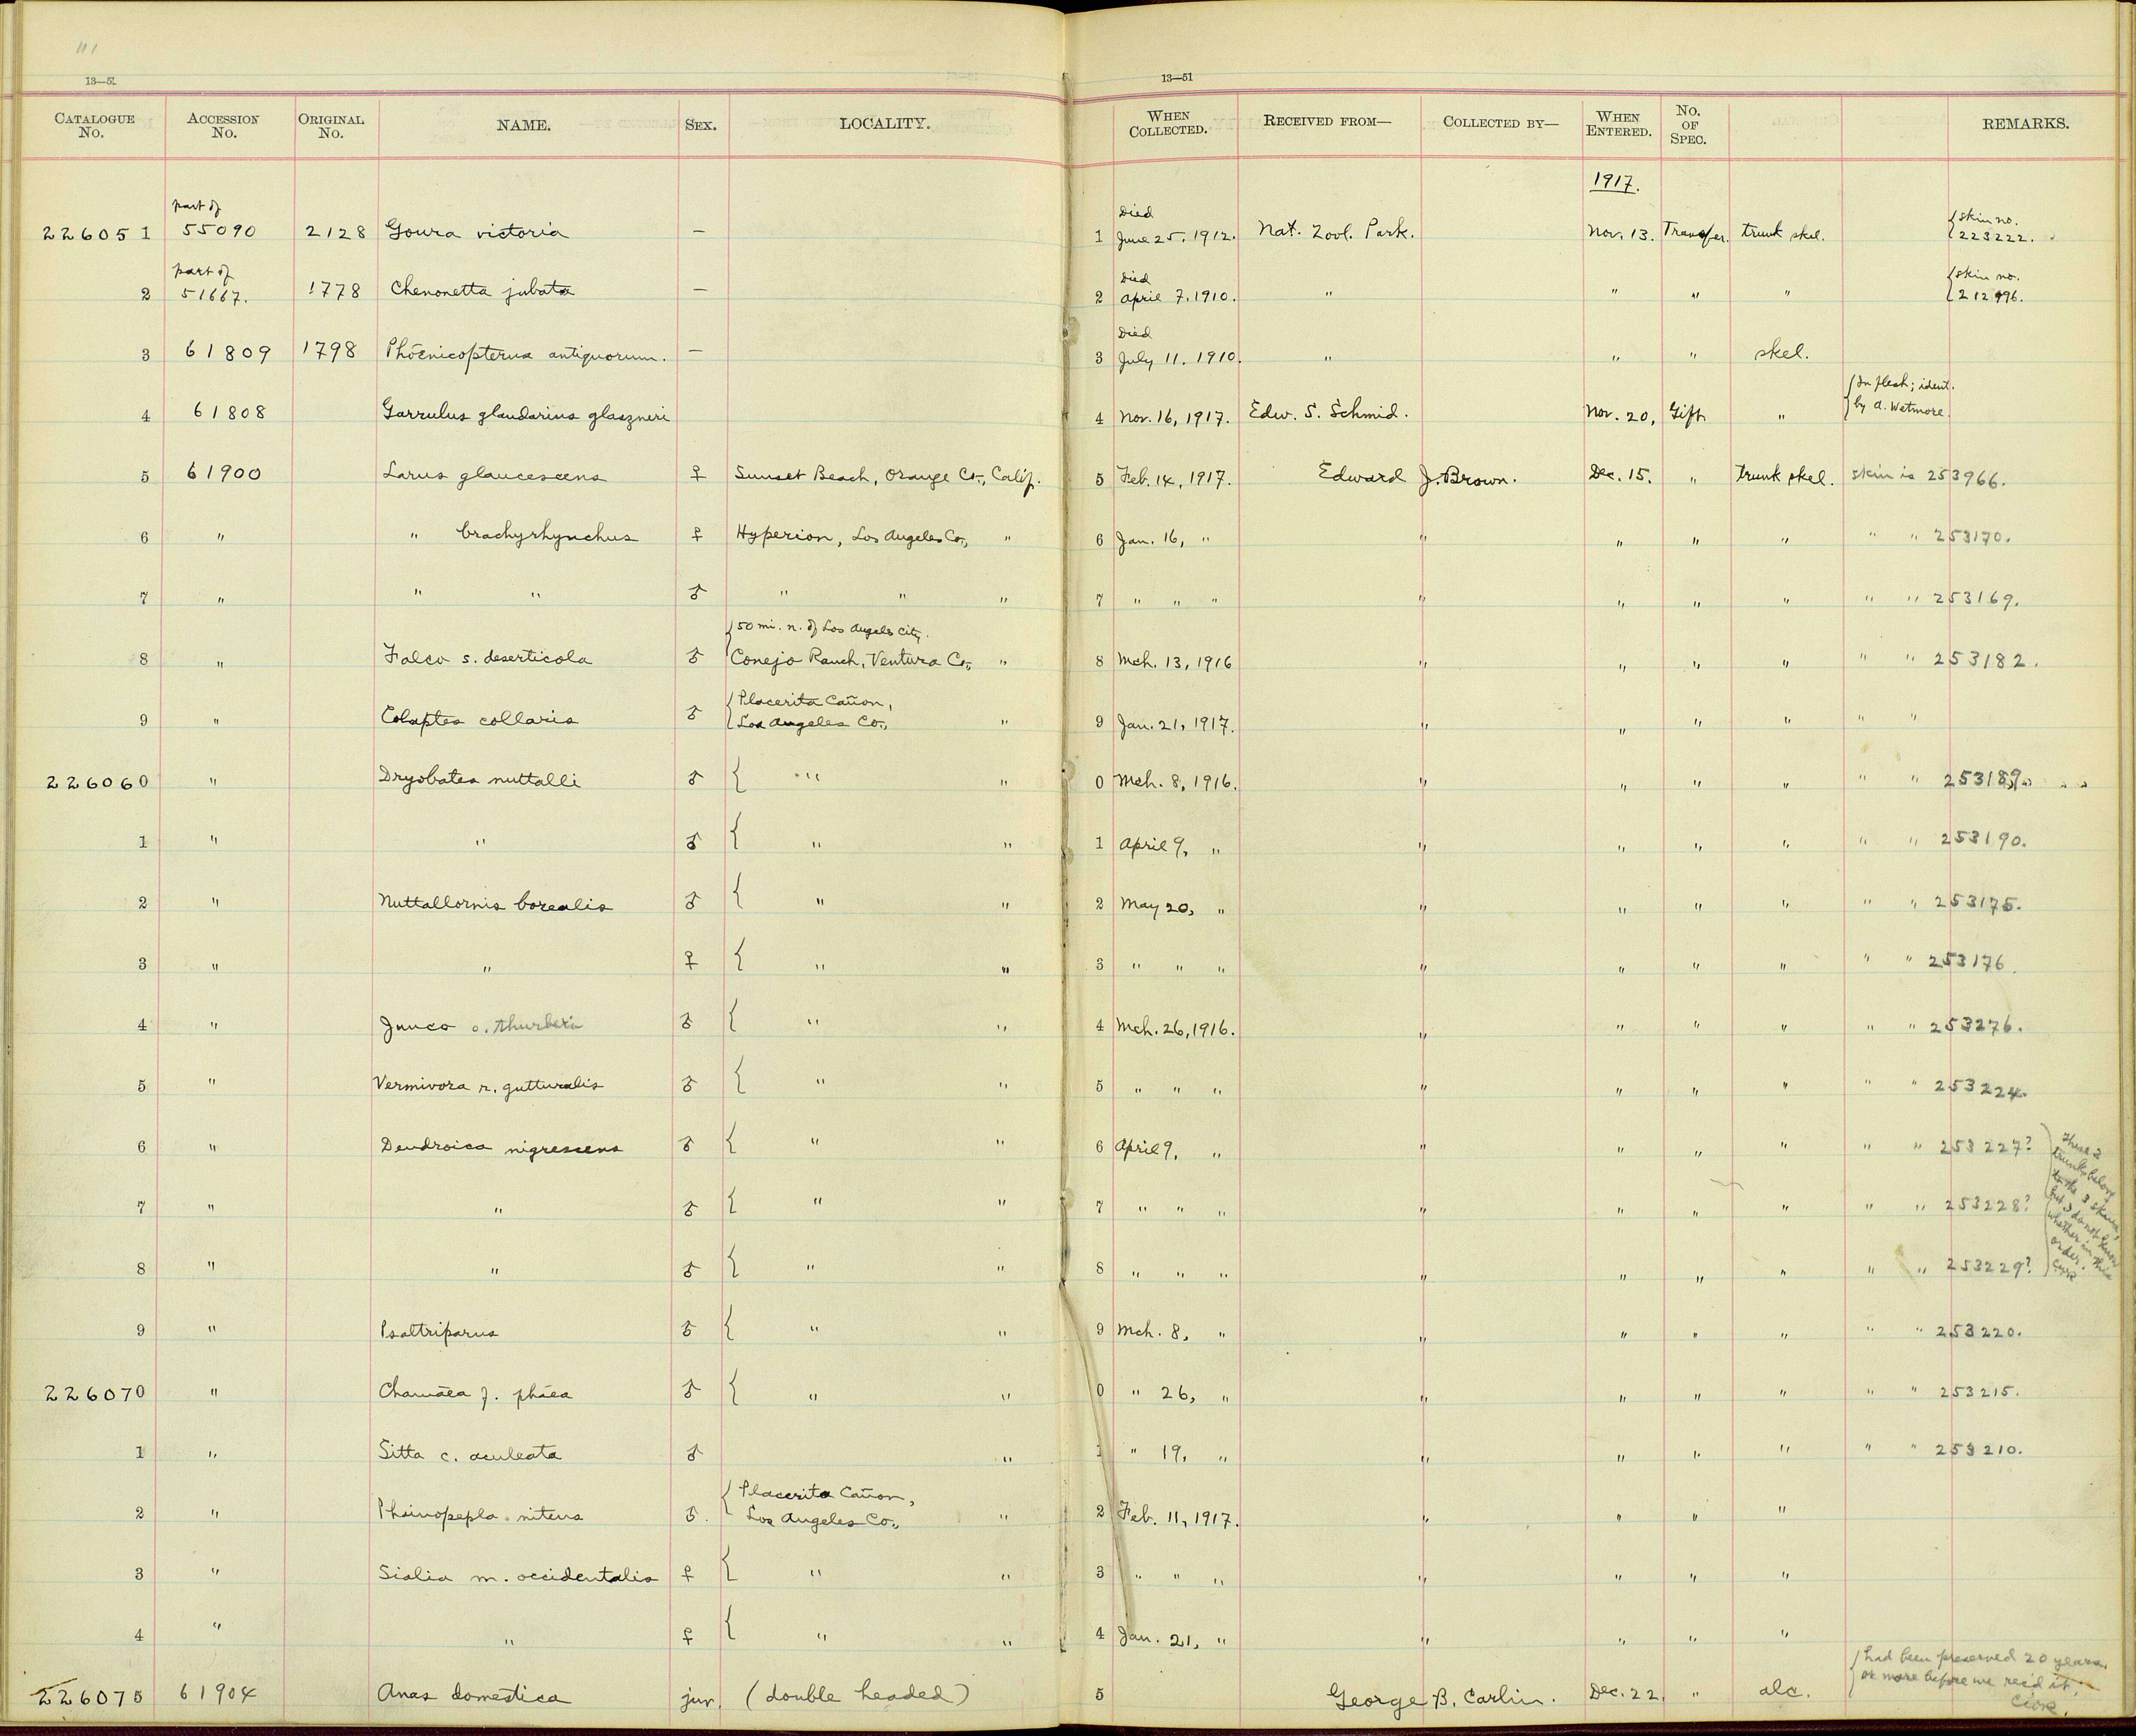 111
13—51 13—51
CATALOGUE No. ACCESSION No. ORIGINAL No. NAME. SEX. LOCALITY. WHEN COLLECTED. RECEIVED FROM— COLLECTED BY— WHEN ENTERED. No. OF SPEC. REMARKS.
1917.
part of Died {skin no.
226051 55090 2128 Goura victoria — 1 June 25, 1912. Nat. Zool. Park. Nov. 13. Transfer. trunk skel. 223222.
part of Died {skin no.
2 51667. 1778 Chenonetta jubata — 2 April 7, 1910. " " " " 212496.
Died
3 61809 1798 Phœnicopterus antiquorum. — 3 July 11, 1910. " " " skel.
{In flesh; ident.
4 61808 Garrulus glandarius glaszneri 4 Nov. 16, 1917. Edw. S. Schmid. Nov. 20, Gift. " by A. Wetmore.
5 61900 Larus glaucescens ♀ Sunset Beach, Orange Co., Calif. 5 Feb. 14, 1917. Edward J. Brown. Dec. 15. " trunk skel. skin is 253966.
6 " " brachyrhynchus ♀ Hyperion, Los Angeles Co., " 6 Jan. 16, " " " " " " " 253170.
7 " " " ♂ " " " 7 " " " " " " " " " 253169.
{50 mi. n. of Los Angeles City.
8 " Falco s. deserticola ♂ Conejo Ranch, Ventura Co., " 8 Mch. 13, 1916 " " " " " " 253182.
{Placerita Cañon,
9 " Colaptes collaris ♂ Los Angeles Co., " 9 Jan. 21, 1917. " " " " " "
226060 " Dryobates nuttalli ♂ { " " 0 Mch. 8, 1916. " " " " " " 253189.
1 " " ♂ { " " 1 April 9, " " " " " " " 253190.
2 " Nuttallornis borealis ♂ { " " 2 May 20, " " " " " " " 253175.
3 " " ♀ { " " 3 " " " " " " " " " 253176.
4 " Junco o. thurberi ♂ { " " 4 Mch. 26, 1916. " " " " " " 253276.
5 " Vermivora r. gutturalis ♂ { " " 5 " " " " " " " " " 253224.
6 " Dendroica nigrescens ♂ { " " 6 April 9, " " " " " " " 253227?
7 " " ♂ { " " 7 " " " " " " " " " 253228?
8 " " ♂ { " " 8 " " " " " " " " " 253229?
These 3
trunks belong
to the 3 skins,
but I do not know
whether in this
order.
9 " Psaltriparus ♂ { " " 9 Mch. 8, " " " " " " " 253220.
226070 " Chamæa f. phæa ♂ { " " 0 " 26, " " " " " " " 253215.
1 " Sitta c. aculeata ♂ " 1 " 19, " " " " " " " 253210.
{Placerita Cañon,
2 " Phainopepla nitens ♂. Los Angeles Co., " 2 Feb. 11, 1917. " " " "
3 " Sialia m. occidentalis ♀ { " " 3 " " " " " " "
4 " " ♀ { " " 4 Jan. 21, " " " " "
{had been preserved 20 years,
226075 61904 Anas domestica juv. (double headed) 5 George B. Carlin. Dec. 22. " alc. or more before we rec'd it.